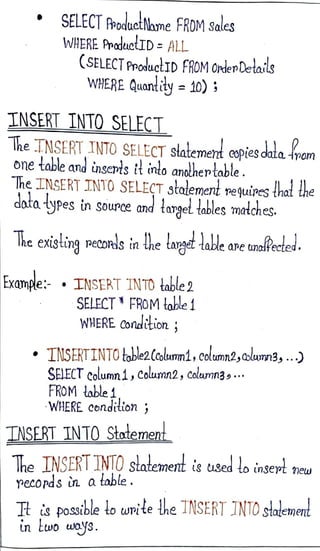 • SELECT ProductName FROM Sales
WHERE ProductID = ALL
(SELECT ProductID FROM OrderDetails
WHERE Quantity = 10) ;
INSERT INTO SELECT
The INSERT INTO SELECT statement copies data from
one table and inserts it into another table.
The INSERT INTO SELECT statement requires that the
data types in source and target tables matches.
The existing records in the target table are unaffected.
Example:- • INSERT INTO table 2
SELECT * FROM table 1
WHERE Condition ;
• INSERT INTO table2(column1, column2, column3, ...)
SELECT column1, column2, column3, ...
FROM table 1
WHERE condition ;
INSERT INTO Statement
The INSERT INTO statement is used to insert new
records in a table.
It is possible to write the INSERT INTO statement
in two ways.